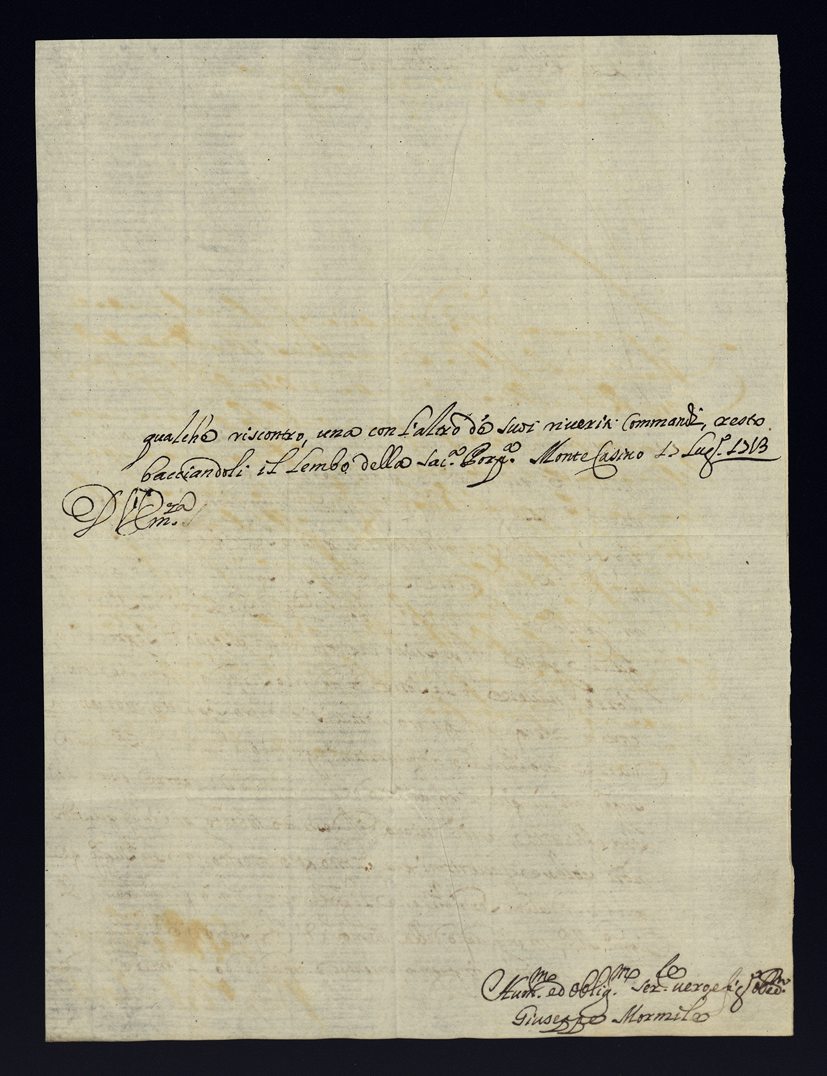 qualche riscontro, una con l'altro de suoi riveriti Commandi, resto
bacciandoli il Lembo della Sac.ª Porp.ª Monte Casino 17 Lug.º 1713
D V Em.za
Hum.mo ed oblig.mo Ser.re
Giuseppe Mormile